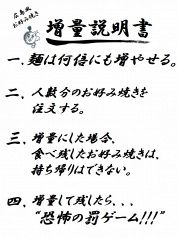 広島風
お好み焼き
増量説明書
一．麺は何倍にも増やせる。
二．人数分のお好み焼きを
注文する。
三．増量にした場合、
食べ残したお好み焼きは、
持ち帰りはできない。
四．増量して残したら、、、
“恐怖の罰ゲーム!!!”